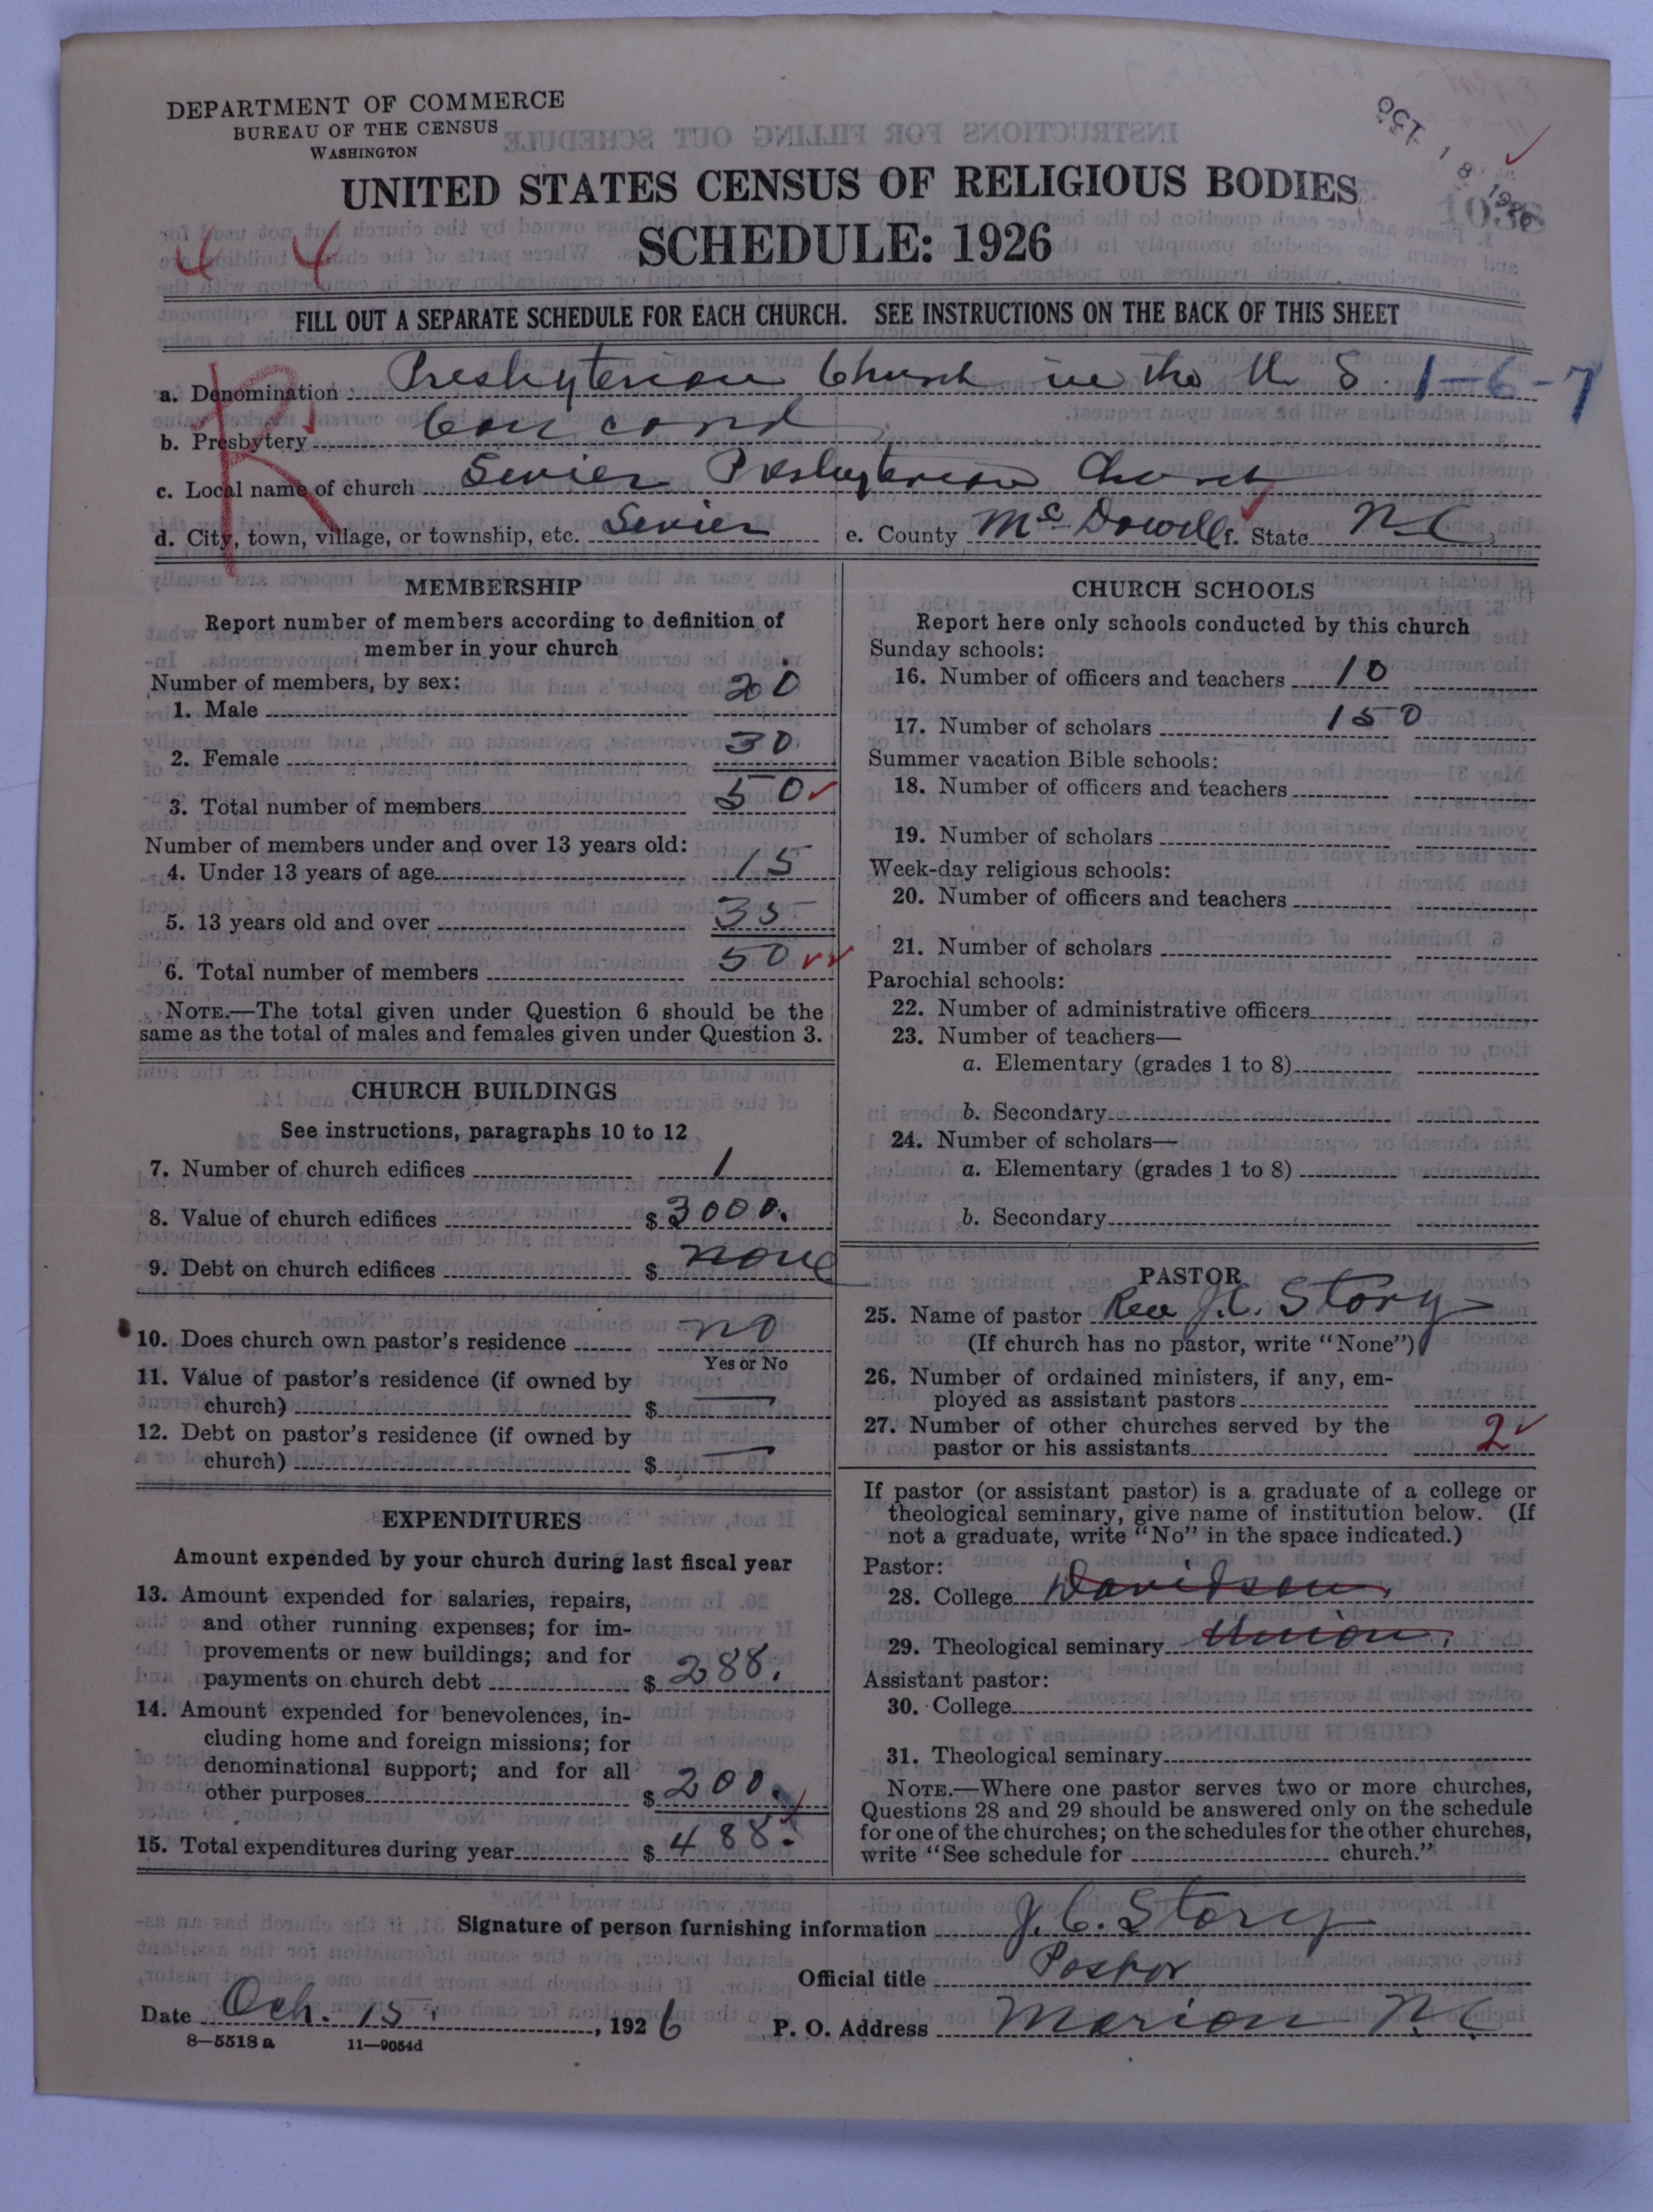 DEPARTMENT OF COMMERCE
BUREAU OF THE CENSUS
WASHINGTON
OCT 18 1926
UNITED STATES CENSUS OF RELIGIOUS BODIES
SCHEDULE: 1926
4 4
FILL OUT A SEPARATE SCHEDULE FOR EACH CHURCH. SEE INSTRUCTIONS ON THE BACK OF THIS SHEET
a. Denomination Presbyterian Church in the U S. 1-6-7
b. Presbytery Concord
c. Local name of church Sevier Presbyterian Church
d. City, town, village, or township, etc. Sevier e. County McDowell f. State N C
R
MEMBERSHIP
Report number of members according to definition of
member in your church
Number of members, by sex:
1. Male 20
2. Female 30
3. Total number of members 50
Number of members under and over 13 years old:
4. Under 13 years of age 15
5. 13 years old and over 35
6. Total number of members 50
NOTE.—The total given under Question 6 should be the
same as the total of males and females given under Question 3.
CHURCH BUILDINGS
See instructions, paragraphs 10 to 12
7. Number of church edifices 1
8. Value of church edifices $ 3000.
9. Debt on church edifices $ none
10. Does church own pastor's residence no
Yes or No
11. Value of pastor's residence (if owned by
church) $ —
12. Debt on pastor's residence (if owned by
church) $ —
EXPENDITURES
Amount expended by your church during last fiscal year
13. Amount expended for salaries, repairs,
and other running expenses; for im-
provements or new buildings; and for
payments on church debt $ 288.
14. Amount expended for benevolences, in-
cluding home and foreign missions; for
denominational support; and for all
other purposes $ 200.
15. Total expenditures during year $ 488.
CHURCH SCHOOLS
Report here only schools conducted by this church
Sunday schools:
16. Number of officers and teachers 10
17. Number of scholars 150
Summer vacation Bible schools:
18. Number of officers and teachers
19. Number of scholars
Week-day religious schools:
20. Number of officers and teachers
21. Number of scholars
Parochial schools:
22. Number of administrative officers
23. Number of teachers—
a. Elementary (grades 1 to 8)
b. Secondary
24. Number of scholars—
a. Elementary (grades 1 to 8)
b. Secondary
PASTOR
25. Name of pastor Rev J.C. Story
(If church has no pastor, write "None")
26. Number of ordained ministers, if any, em-
ployed as assistant pastors
27. Number of other churches served by the
pastor or his assistants 2
If pastor (or assistant pastor) is a graduate of a college or
theological seminary, give name of institution below. (If
not a graduate, write "No" in the space indicated.)
Pastor:
28. College Davidson
29. Theological seminary Union.
Assistant pastor:
30. College
31. Theological seminary
NOTE.—Where one pastor serves two or more churches,
Questions 28 and 29 should be answered only on the schedule
for one of the churches; on the schedules for the other churches,
write "See schedule for church."
Signature of person furnishing information J. C. Story
Official title Pastor
Date Och. 15, 1926 P. O. Address Marion N. C
8—5518 a 11—9054d